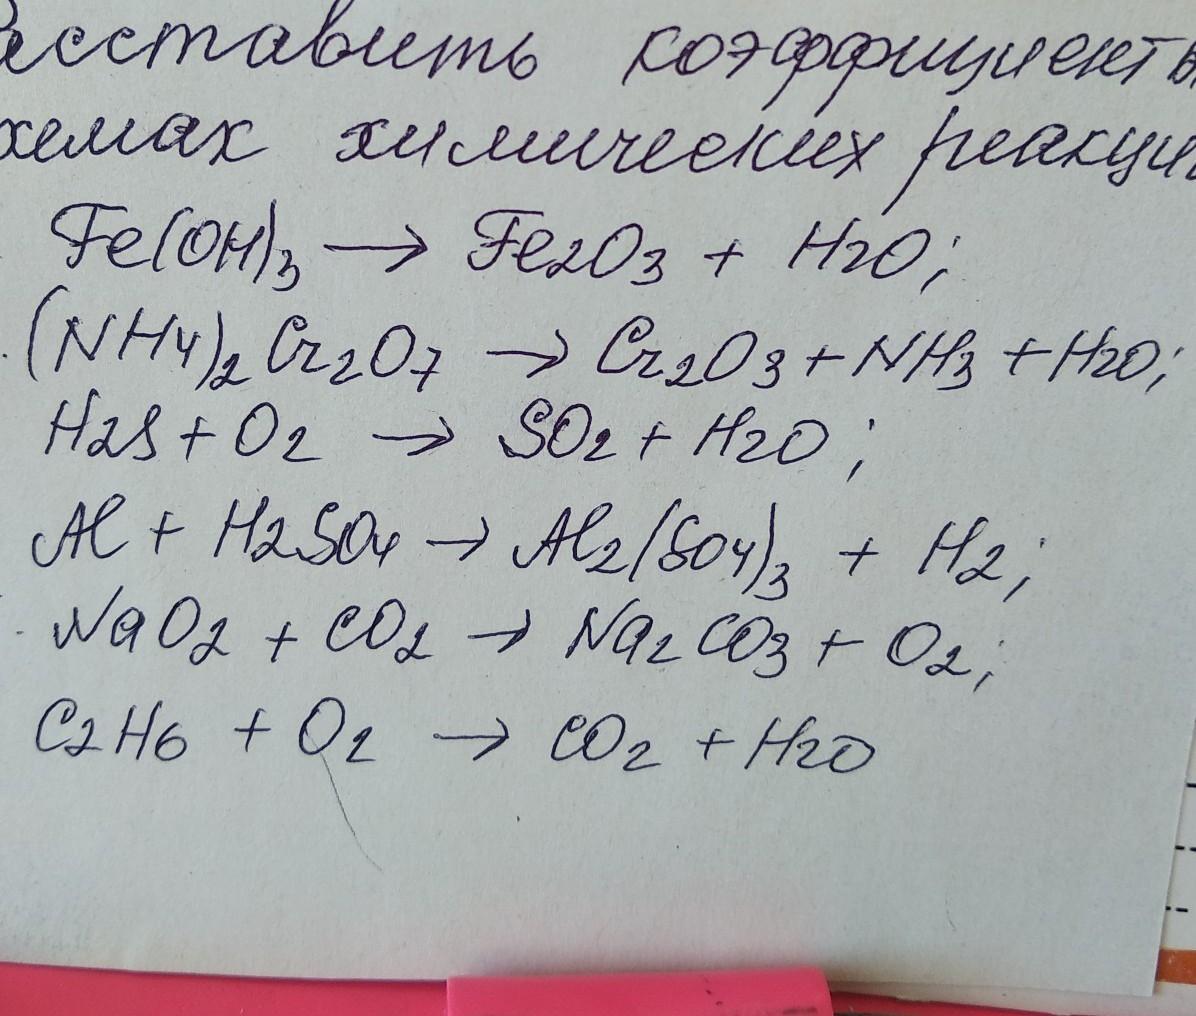 асставить коэффициенты
хемах химических реакци
Fe(OH)3 → Fe2O3 + H2O;
(NH4)2Cr2O7 → Cr2O3 + NH3 + H2O;
H2S + O2 → SO2 + H2O;
Al + H2SO4 → Al2(SO4)3 + H2;
NaO2 + CO2 → Na2CO3 + O2;
C2H6 + O2 → CO2 + H2O